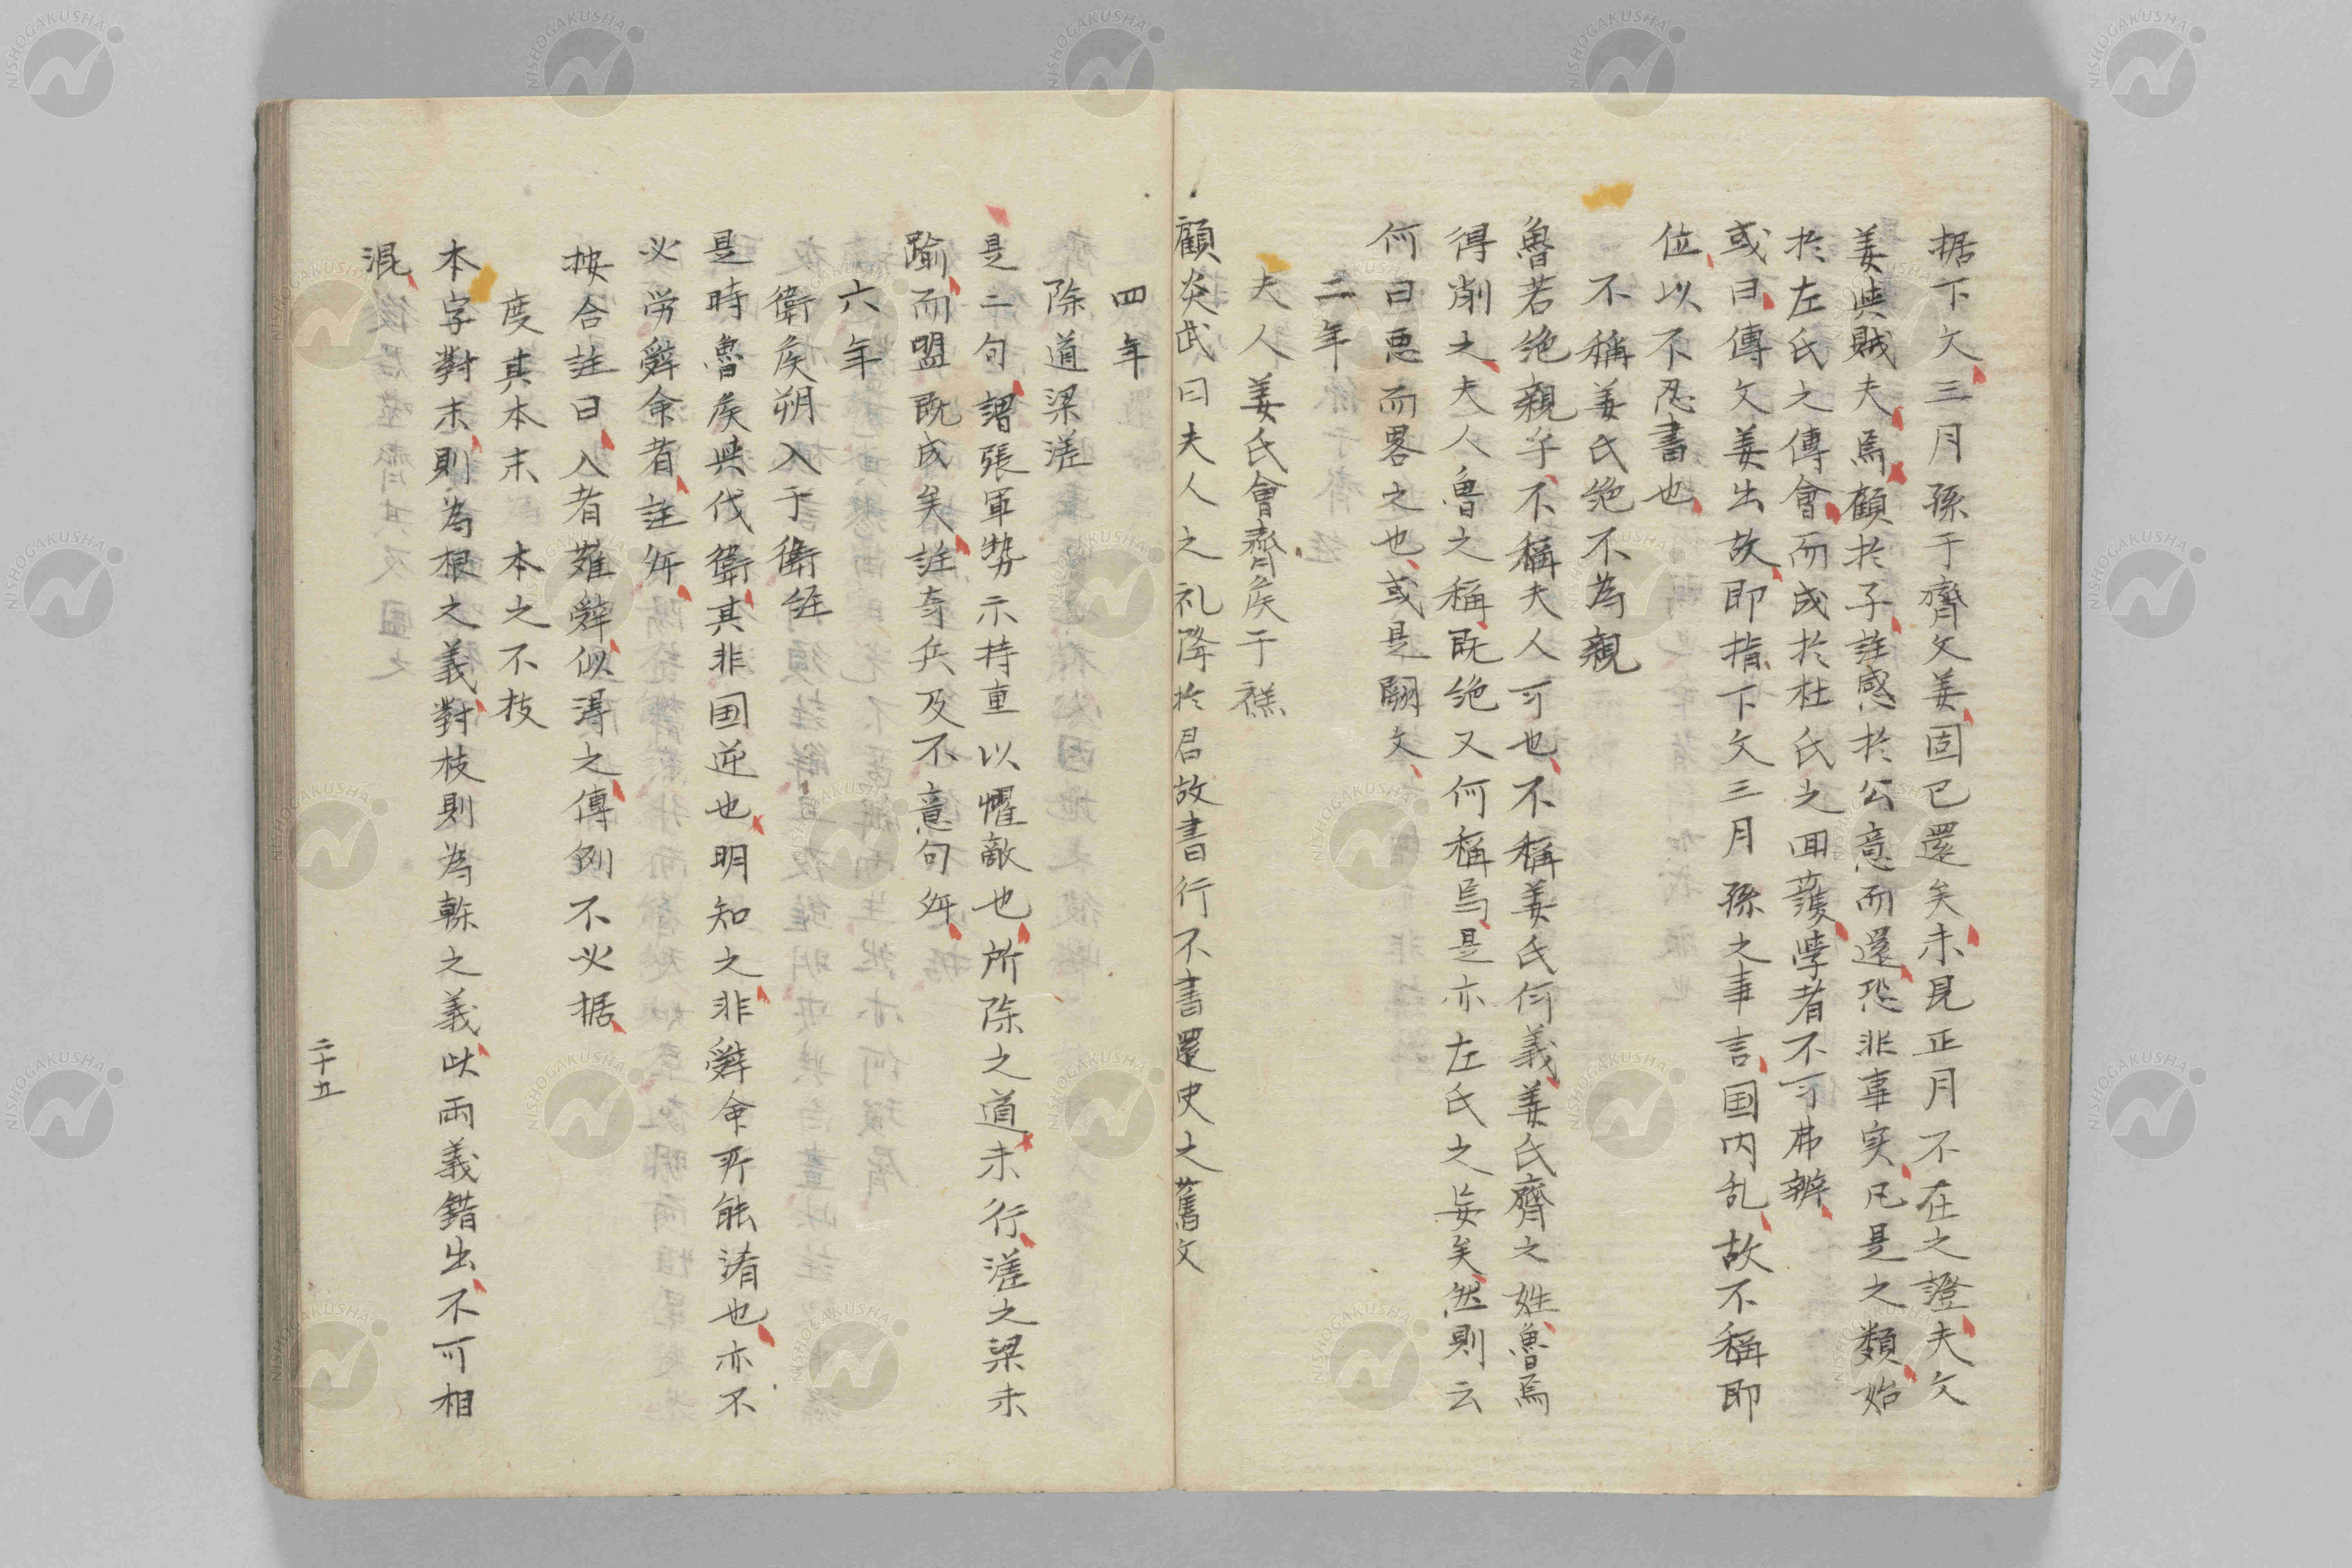 据下文三月孫于齊文姜固已還矣未見正月不在之證夫文
姜與賊夫焉顧於子註感於公意而還恐非事実凡是之類始
於左氏之傳會而成於杜氏之囬護學者不可弗辨
或曰傳文姜出故即指下文三月孫之事言国内乱故不稱即
位以不忍書也
不稱姜氏絶不為親
魯若絶親乎不稱夫人可也不稱姜氏何義姜氏齊之姓魯焉
得削之夫人魯之稱既絶又何稱焉是亦左氏之妄矣然則云
何曰悪而畧之也或是闕文
二年
夫人姜氏會齊矦于禚
顧炎武曰夫人之礼降於君故書行不書還史之舊文
四年
除道梁溠
是二句謂張軍勢示持重以懼敵也所除之道未行溠之梁未
踰而盟既成矣註奇兵及不意句舛
六年
衛矦朔入于衛経
是時魯矦與伐衛其非国逆也明知之非辭命所能淆也亦不
必労辭命者註舛
按合註曰入者難辭似淂之傳例不必据
度其本末　本之不枝
本字對末則為根之義對枝則為榦之義此兩義錯出不可相
混
二十五
NISHOGAKUSHA